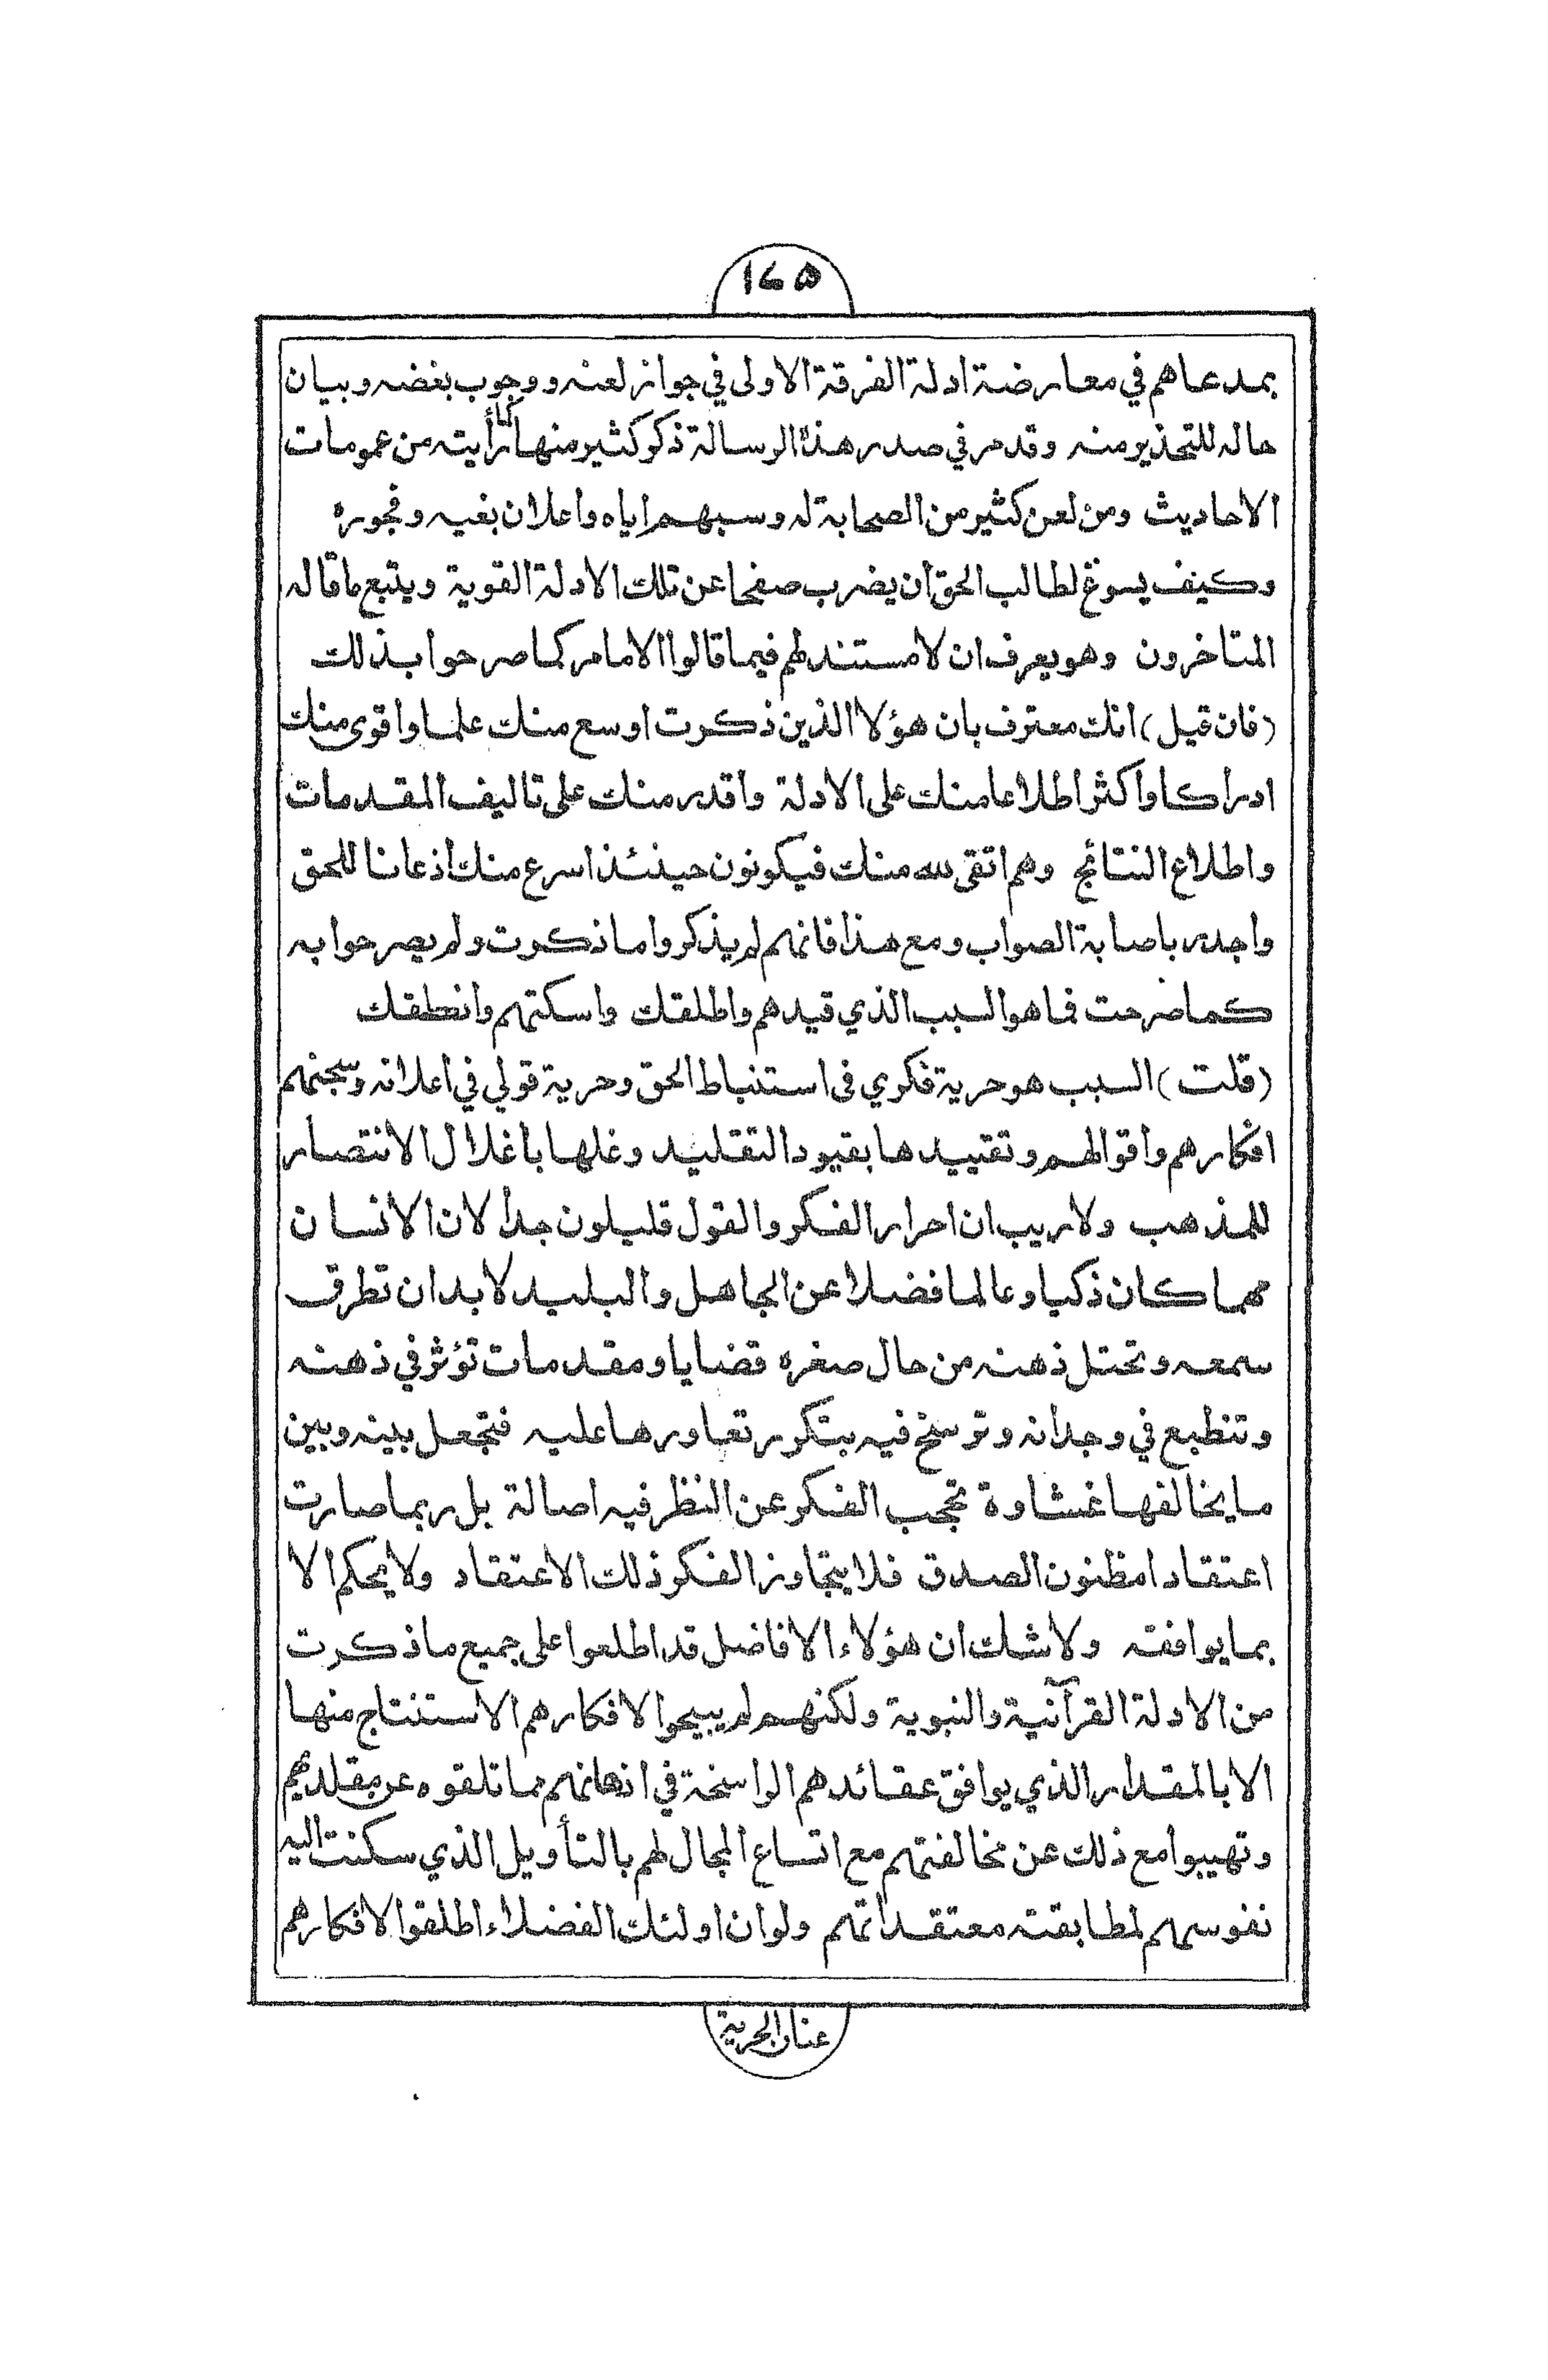 ١٤٥
بمدعاهم في معارضة ادلة الفرقة الاولى في جواز لعنه ووجوب بغضه وبيان
حاله للتحذير منه وقد مر في صدر هذه الرسالة ذكر كثير منها كما رأيته من عمومات
الاحاديث ومن لعن كثير من الصحابة له وسبهم اياه واعلان بغيه وفجوره
وكيف يسوغ لطالب الحق ان يضرب صفحا عن تلك الادلة القوية ويتبع ما قاله
المتاخرون وهو يعرف ان لا مستند لهم فيما قالوا الا مامر كما صرحوا بذلك
(فان قيل) انك معترف بان هؤلا الذين ذكرت اوسع منك علما واقوى منك
ادراكا واكثر اطلاعا منك على الادلة واقدر منك على تاليف المقدمات
واطلاع النتائج وهم اتقى لله منك فيكونون حينئذ اسرع منك اذعانا للحق
واجدر باصابة الصواب ومع هذا فانهم لم يذكروا ما ذكرت ولم يصرحوا به
كما صرحت فما هو السبب الذي قيدهم واطلقك واسكتهم وانطقك
(قلت) السبب هو حرية فكري في استنباط الحق وحرية قولي في اعلانه وسجنهم
افكارهم واقوالهم وتقييدها بقيود التقليد وغلها بأغلال الانتصار
للمذهب ولا ريب ان احرار الفكر والقول قليلون جدا لان الانسان
مهما كان ذكيا وعالما فضلا عن الجاهل والبليد لا بد ان تطرق
سمعه وتحتل ذهنه من حال صغره قضايا ومقدمات تؤثر في ذهنه
وتنطبع في وجدانه وترسخ فيه بتكرر تعاورها عليه فتجعل بينه وبين
ما يخالفها غشاوة تحجب الفكر عن النظر فيه اصالة بل ربما صارت
اعتقادا مظنون الصدق فلا يتجاوز الفكر ذلك الاعتقاد ولا يحكم الا
بما يوافقه ولا شك ان هؤلاء الافاضل قد اطلعوا على جميع ما ذكرت
من الادلة القرآنية والنبوية ولكنهم لم يبيحوا لافكارهم الاستنتاج منها
الا بالمقدار الذي يوافق عقائدهم الراسخة في اذهانهم مما تلقوه عن مقلديهم
وتهيبوا مع ذلك عن مخالفتهم مع اتساع المجال لهم بالتأويل الذي سكنت اليه
نفوسهم لمطابقته معتقداتهم ولو ان اولئك الفضلاء اطلقوا لافكارهم
عنان الحرية